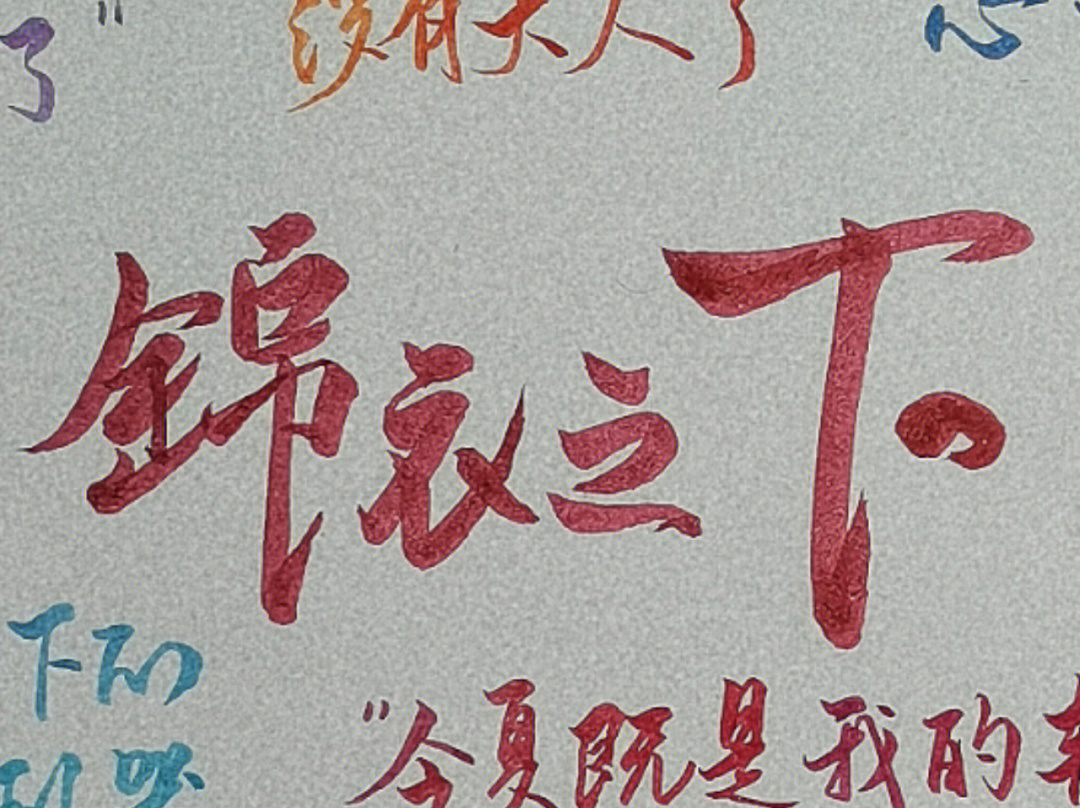 了"
没有夫人了
心
锦衣之下
下的
"今夏既是我的